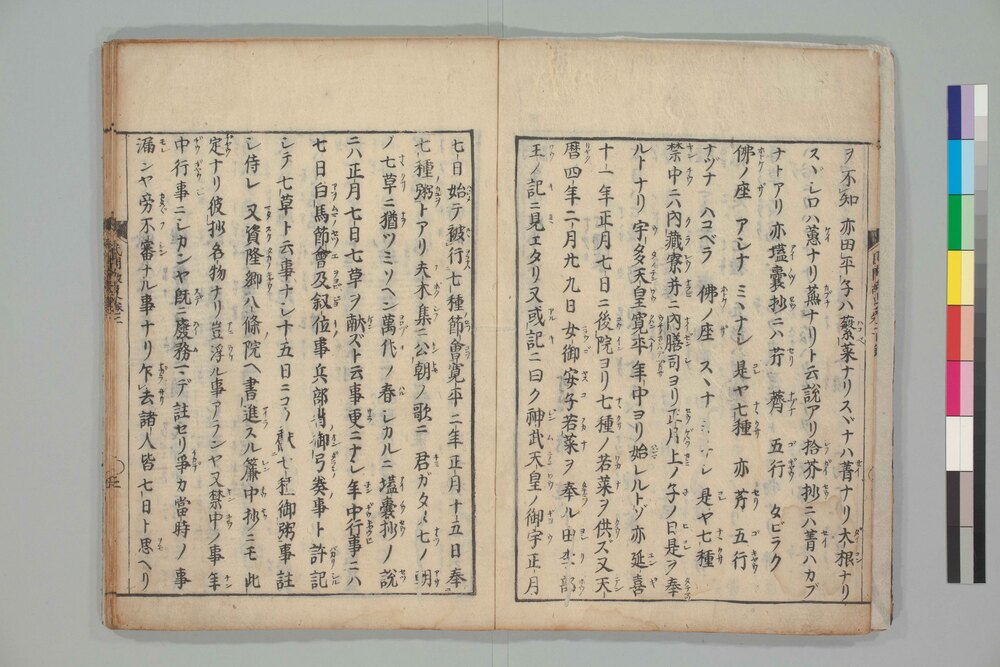 ヲ不知亦田平子ハ蘩菜ナリスヾナハ菁ナリ大根ナリ
スヾシロハ蔥ナリ蕪ナリト云説アリ拾芥抄ニハ菁ハカブ
ナトアリ亦壒囊抄ニハ芹薺五行タビラク
佛ノ座アシナミヽナシ是ヤ七種亦芳五行
ナヅナハコベラ佛ノ座スヽナミヽナシ是ヤ七種
禁中ニ内藏寮并ニ内膳司ヨリ正月上ノ子ノ日是ヲ奉
ルトナリ宇多天皇寛平年中ヨリ始レルトゾ亦延喜
十一年正月七日ニ後院ヨリ七種ノ若菜ヲ供ズ又天
暦四年二月九九日女御安子若菜ヲ奉ル田李部
王ノ記ニ見エタリ又或記ニ曰ク神武天皇ノ御宇正月
七日始テ被行七種節會寛平二年正月十五日奉
七種粥トアリ夫木集ニ公朝ノ歌ニ君ガタメ七ノ朝
ノ七草ニ猶ツミソヘン萬代ノ春シカルニ壒囊抄ノ説
ニハ正月七日七草ヲ献ズト云事更ニナシ年中行事ニハ
七日白馬節會及叙位事兵部省御弓奏事ト許記
シテ七草ト云事ナシ十五日ニコソ獻七種御粥事註
シ侍レ又資隆卿八條院ヘ書進スル簾中抄ニモ此
定ナリ彼抄名物ナリ豈浮ル事アランヤ又禁中ノ事年
中行事ニシカンヤ既ニ廢務マデ註セリ爭カ當時ノ事
漏ンヤ旁不審ナル事ナリ乍去諸人皆七日ト思ヘリ